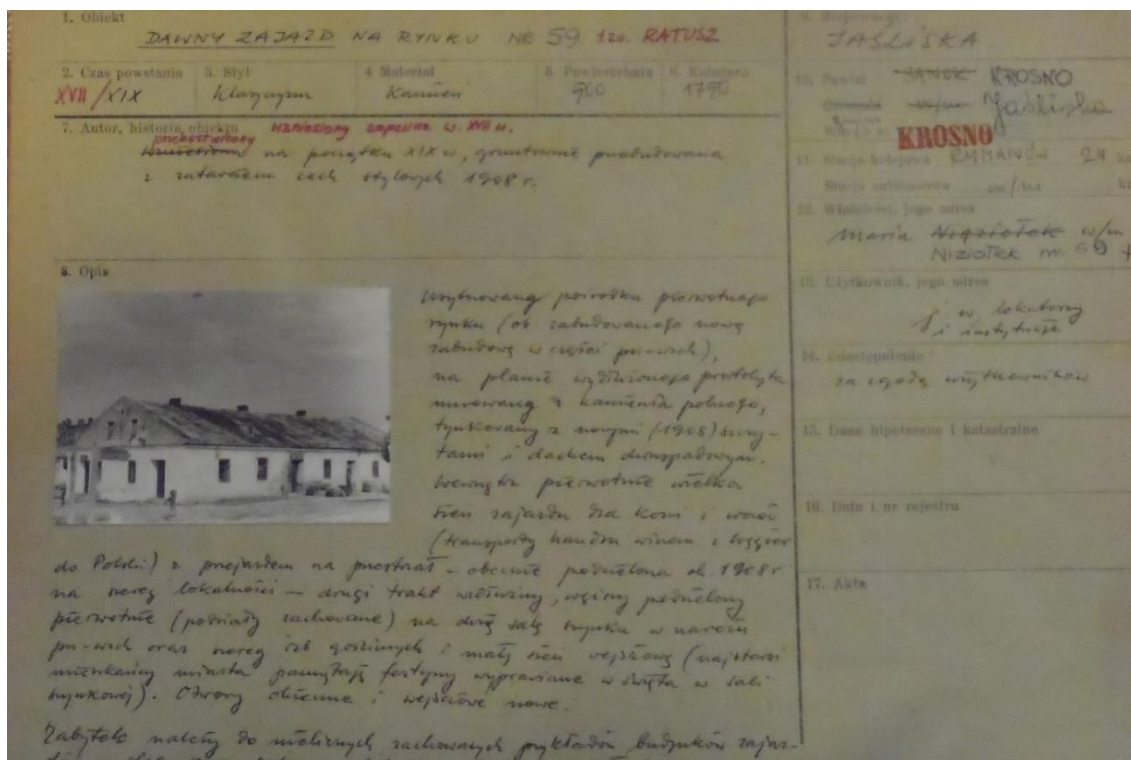 1. Obiekt
DAWNY ZAJAZD NA RYNKU NR 59 tzw. RATUSZ
2. Czas powstania
XVII/XIX
3. Styl
Klasycyzm
4 Materiał
Kamień
5. Powierzchnia
560
6. Kubatura
1790
7. Autor, historia obiektu wzniesiony zapewne w. XVII w.
przekształcony
na początku XIX w, gruntownie przebudowana
z zatarciem cech stylowych 1908 r.
8. Opis
Usytuowany pośrodku pierwotnego
rynku (ob zabudowanego nową
zabudową w części pn-wsch),
na planie wydłużonego prostokąta
murowany z kamienia polnego,
tynkowany z nowymi (1908) szczy-
tami i dachem dwuspadowym.
Wewnątrz pierwotnie wielka
sień zajazdu dla koni i wozów
(transporty handlu winem z Węgier
do Polski) z przejazdem na przestrzał - obecnie podzielona ok. 1908 r
na szereg lokalności - drugi trakt węższy podzielony
pierwotnie (podziały zachowane) na dwie sale w narożu
pn-wsch oraz szereg izb gościnnych i małą sień wejściową (najstarsi
mieszkańcy miasta pamiętają festyny wyprawiane w święta w sali
). Otwory okienne i wejściowe nowe.
Zabytek należy do nielicznych zachowanych przykładów budynków zajaz-
9. Miejscowość
JAŚLISKA
10. Powiat SANOK KROSNO
Gmina w/m Jaśliska
KROSNO
11. Stacja kolejowa RYMANÓW 24
Stacja autobusowa w/m
12. Właściciel, jego adres
Maria w/m
Niziołek nr. 59
13. Użytkownik, jego adres
j w. lokatorzy
i instytucje
14. Udostępnienie
za zgodą użytkowników
15. Dane hipoteczne i katastralne
16. Data i nr rejestru
17. Akta